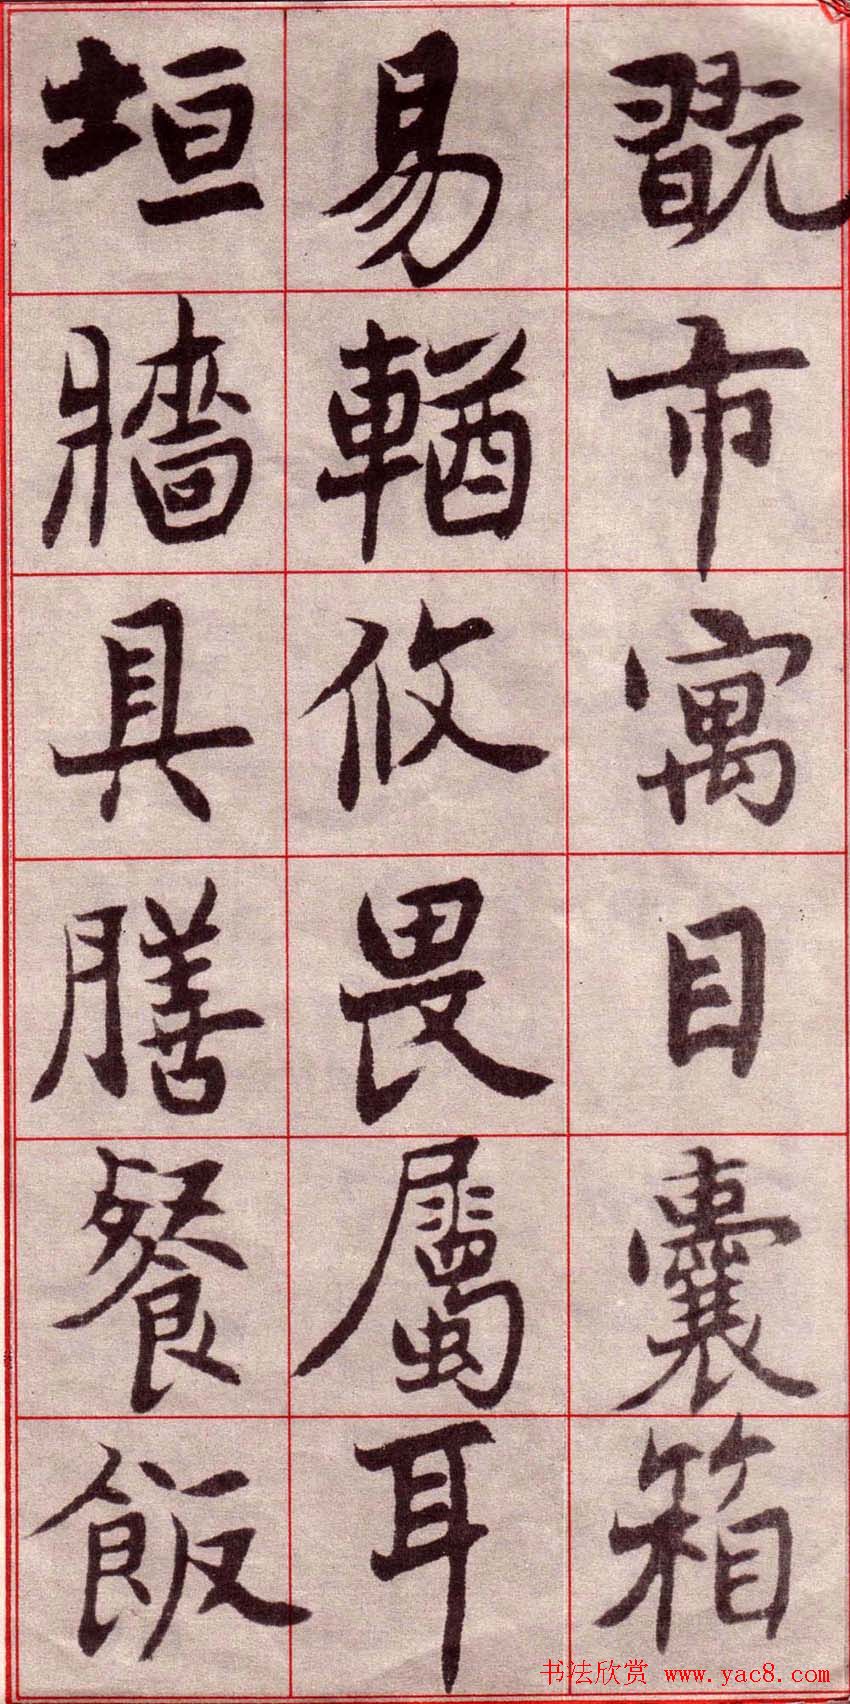 翫市寓目囊箱
易輶攸畏屬耳
垣牆具膳餐飯
书法欣赏 www.yac8.com